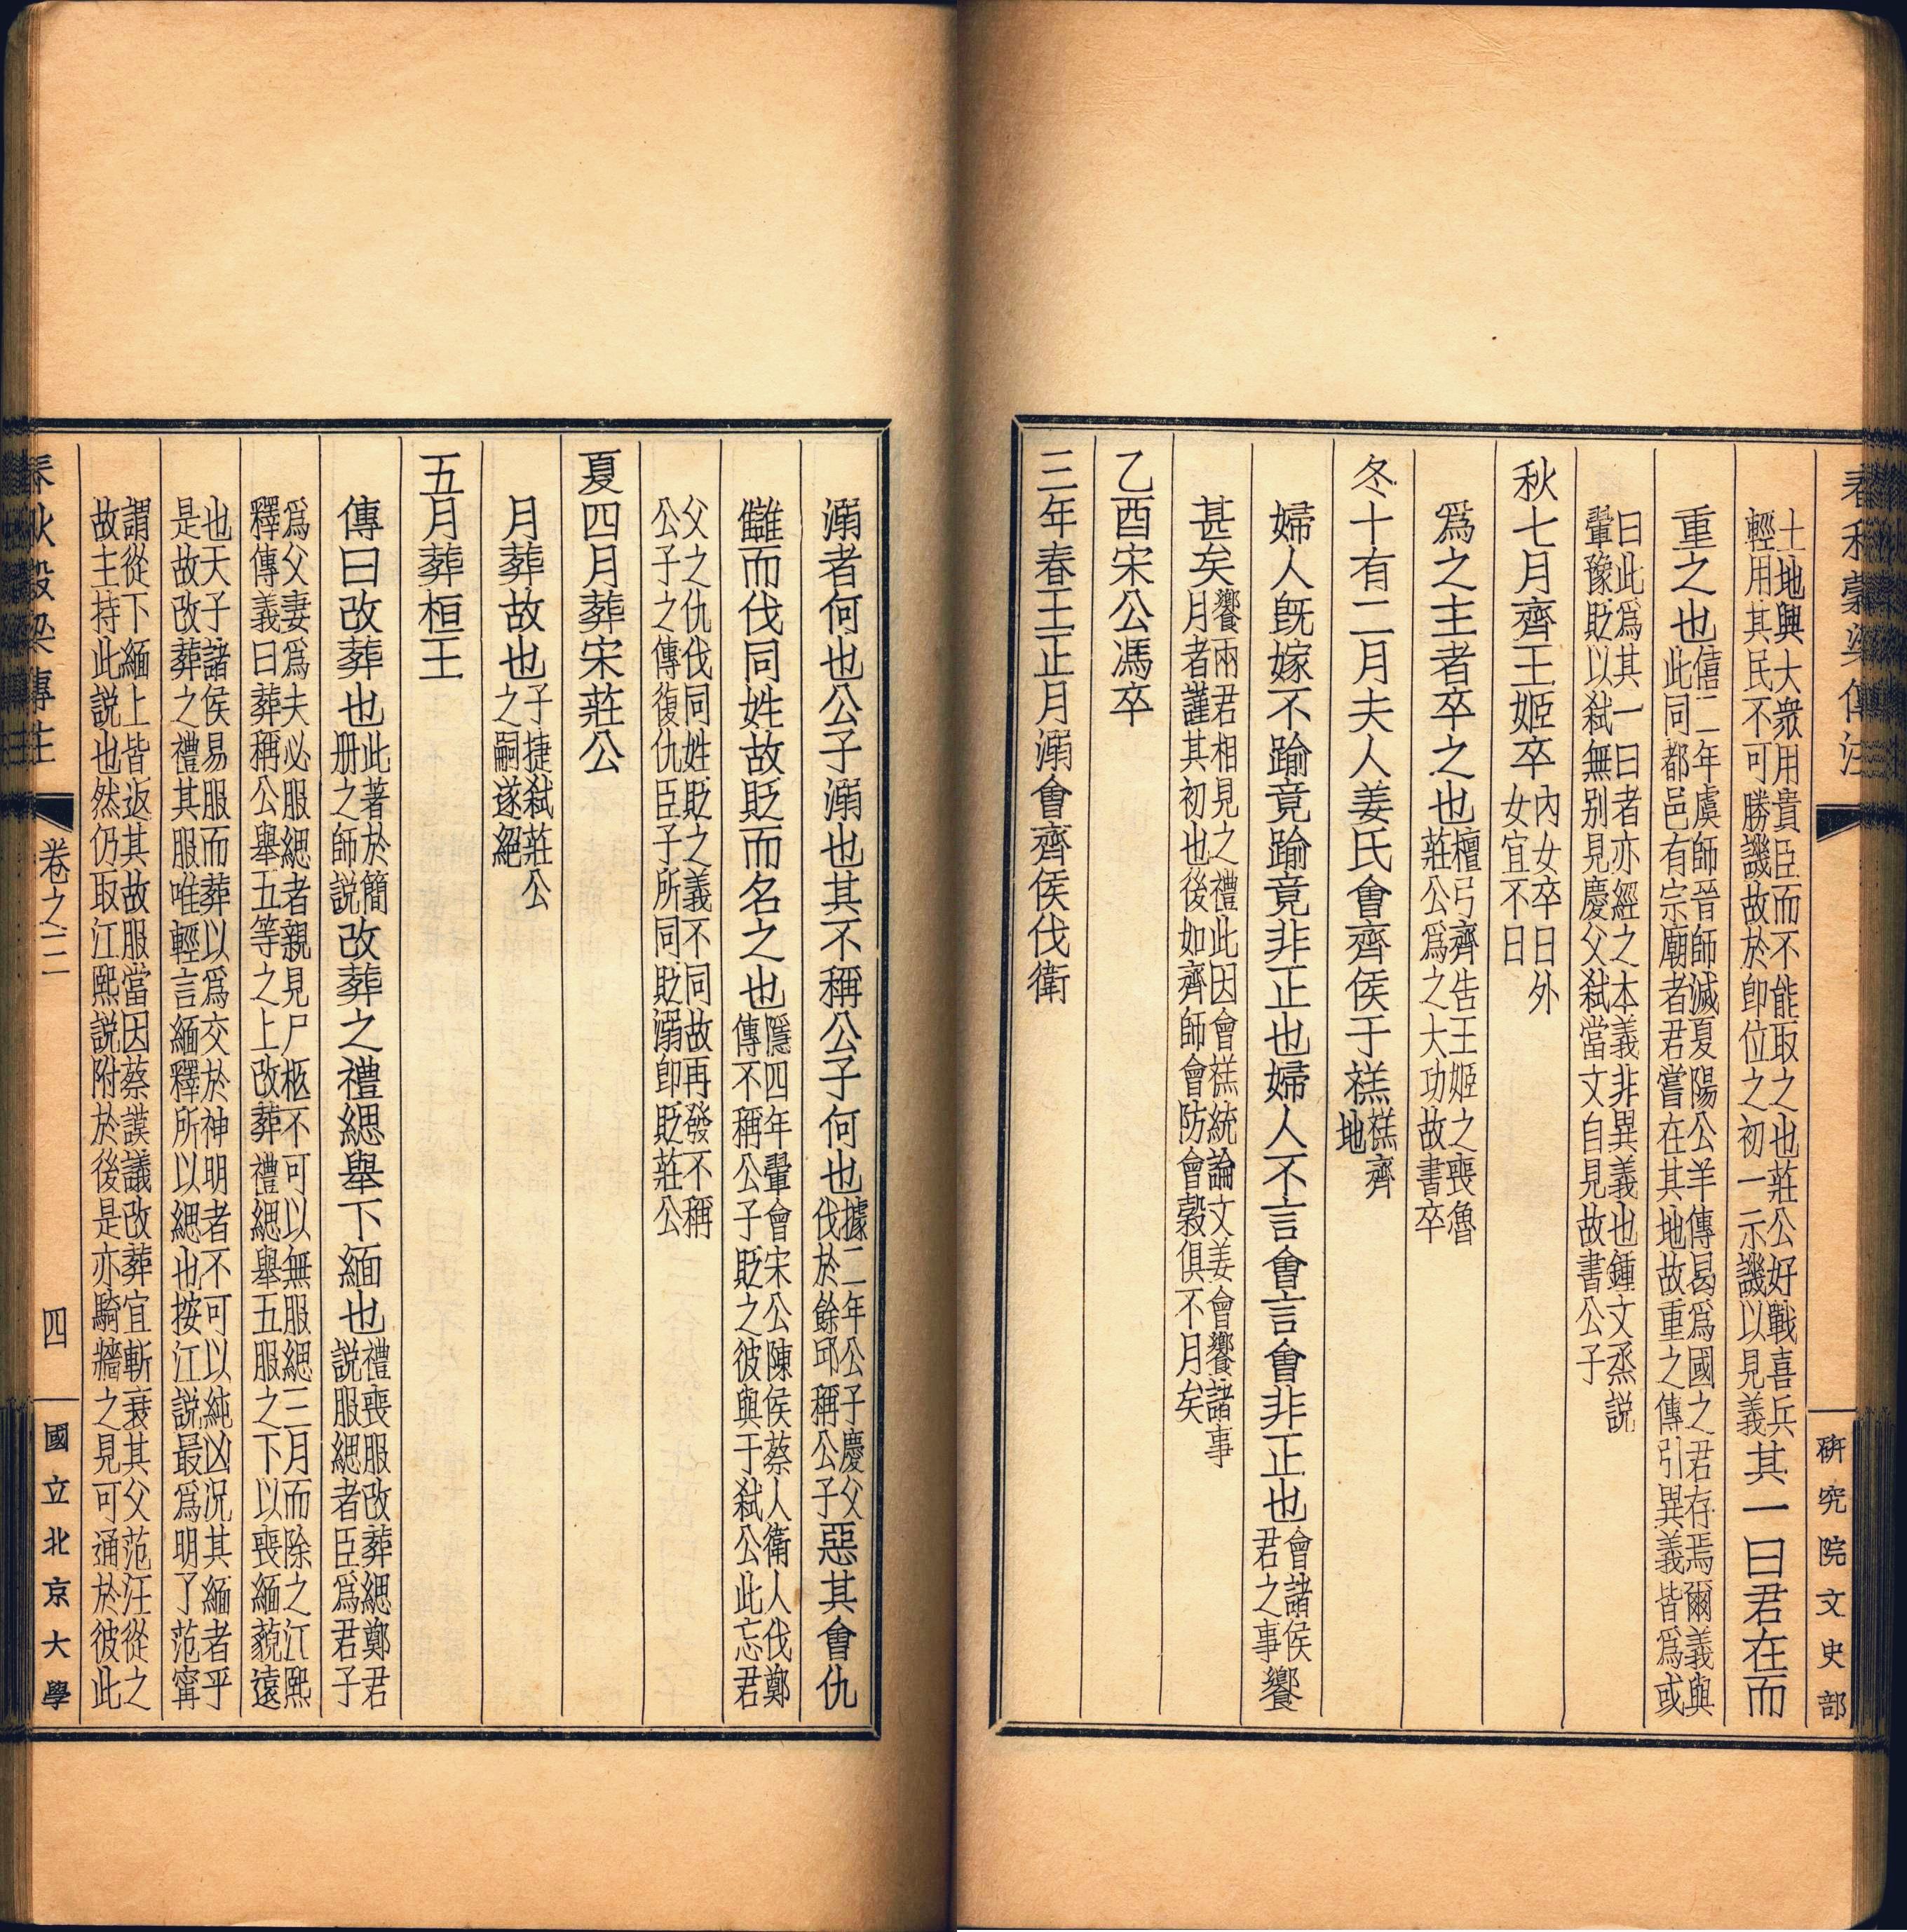 春秋穀梁傳注
研究院文史部
土地與大衆用貴臣而不能取之也莊公好戰喜兵
輕用其民不可勝譏故於卽位之初一示譏以見義
其一曰君在而
重之也
僖二年虞師晉師滅夏陽公羊傳曷爲國之君存焉爾義與
此同都邑有宗廟者君嘗在其地故重之傳引異義皆爲或
曰此爲其一曰者亦經之本義非異義也鍾文烝説
翬豫貶以弑無别見慶父弑當文自見故書公子
秋七月齊王姬卒
內女卒日外
女宜不日
爲之主者卒之也
檀弓齊告王姬之喪魯
莊公爲之大功故書卒
冬十有二月夫人姜氏會齊侯于禚
禚齊
地
婦人旣嫁不踰竟踰竟非正也婦人不言會言會非正也
會諸侯
君之事
饗
甚矣
饗兩君相見之禮此因會禚統論文姜會饗諸事
月者謹其初也後如齊師會防會穀俱不月矣
乙酉宋公馮卒
三年春王正月溺會齊侯伐衛
溺者何也公子溺也其不稱公子何也
據二年公子慶父
伐於餘邱稱公子
惡其會仇
讎而伐同姓故貶而名之也
隱四年翬會宋公陳侯蔡人衛人伐鄭
傳不稱公子貶之彼與于弑公此忘君
父之仇伐同姓貶之義不同故再發不稱
公子之傳復仇臣子所同貶溺卽貶莊公
夏四月葬宋莊公
月葬故也
子捷弑莊公
之嗣遂絕
五月葬桓王
傳曰改葬也
此著於簡
册之師説
改葬之禮緦舉下緬也
禮喪服改葬緦鄭君
説服緦者臣爲君子
爲父妻爲夫必服緦者親見尸柩不可以無服緦三月而除之江熙
釋傳義曰葬稱公舉五等之上改葬禮緦舉五服之下以喪緬藐遠
也天子諸侯易服而葬以爲交於神明者不可以純凶況其緬者乎
是故改葬之禮其服唯輕言緬釋所以緦也按江説最爲明了范甯
謂從下緬上皆返其故服當因蔡謨議改葬宜斬衰其父范汪從之
故主持此説也然仍取江熙説附於後是亦騎牆之見可通於彼此
春秋穀梁傳注
卷之三
四
國立北京大學